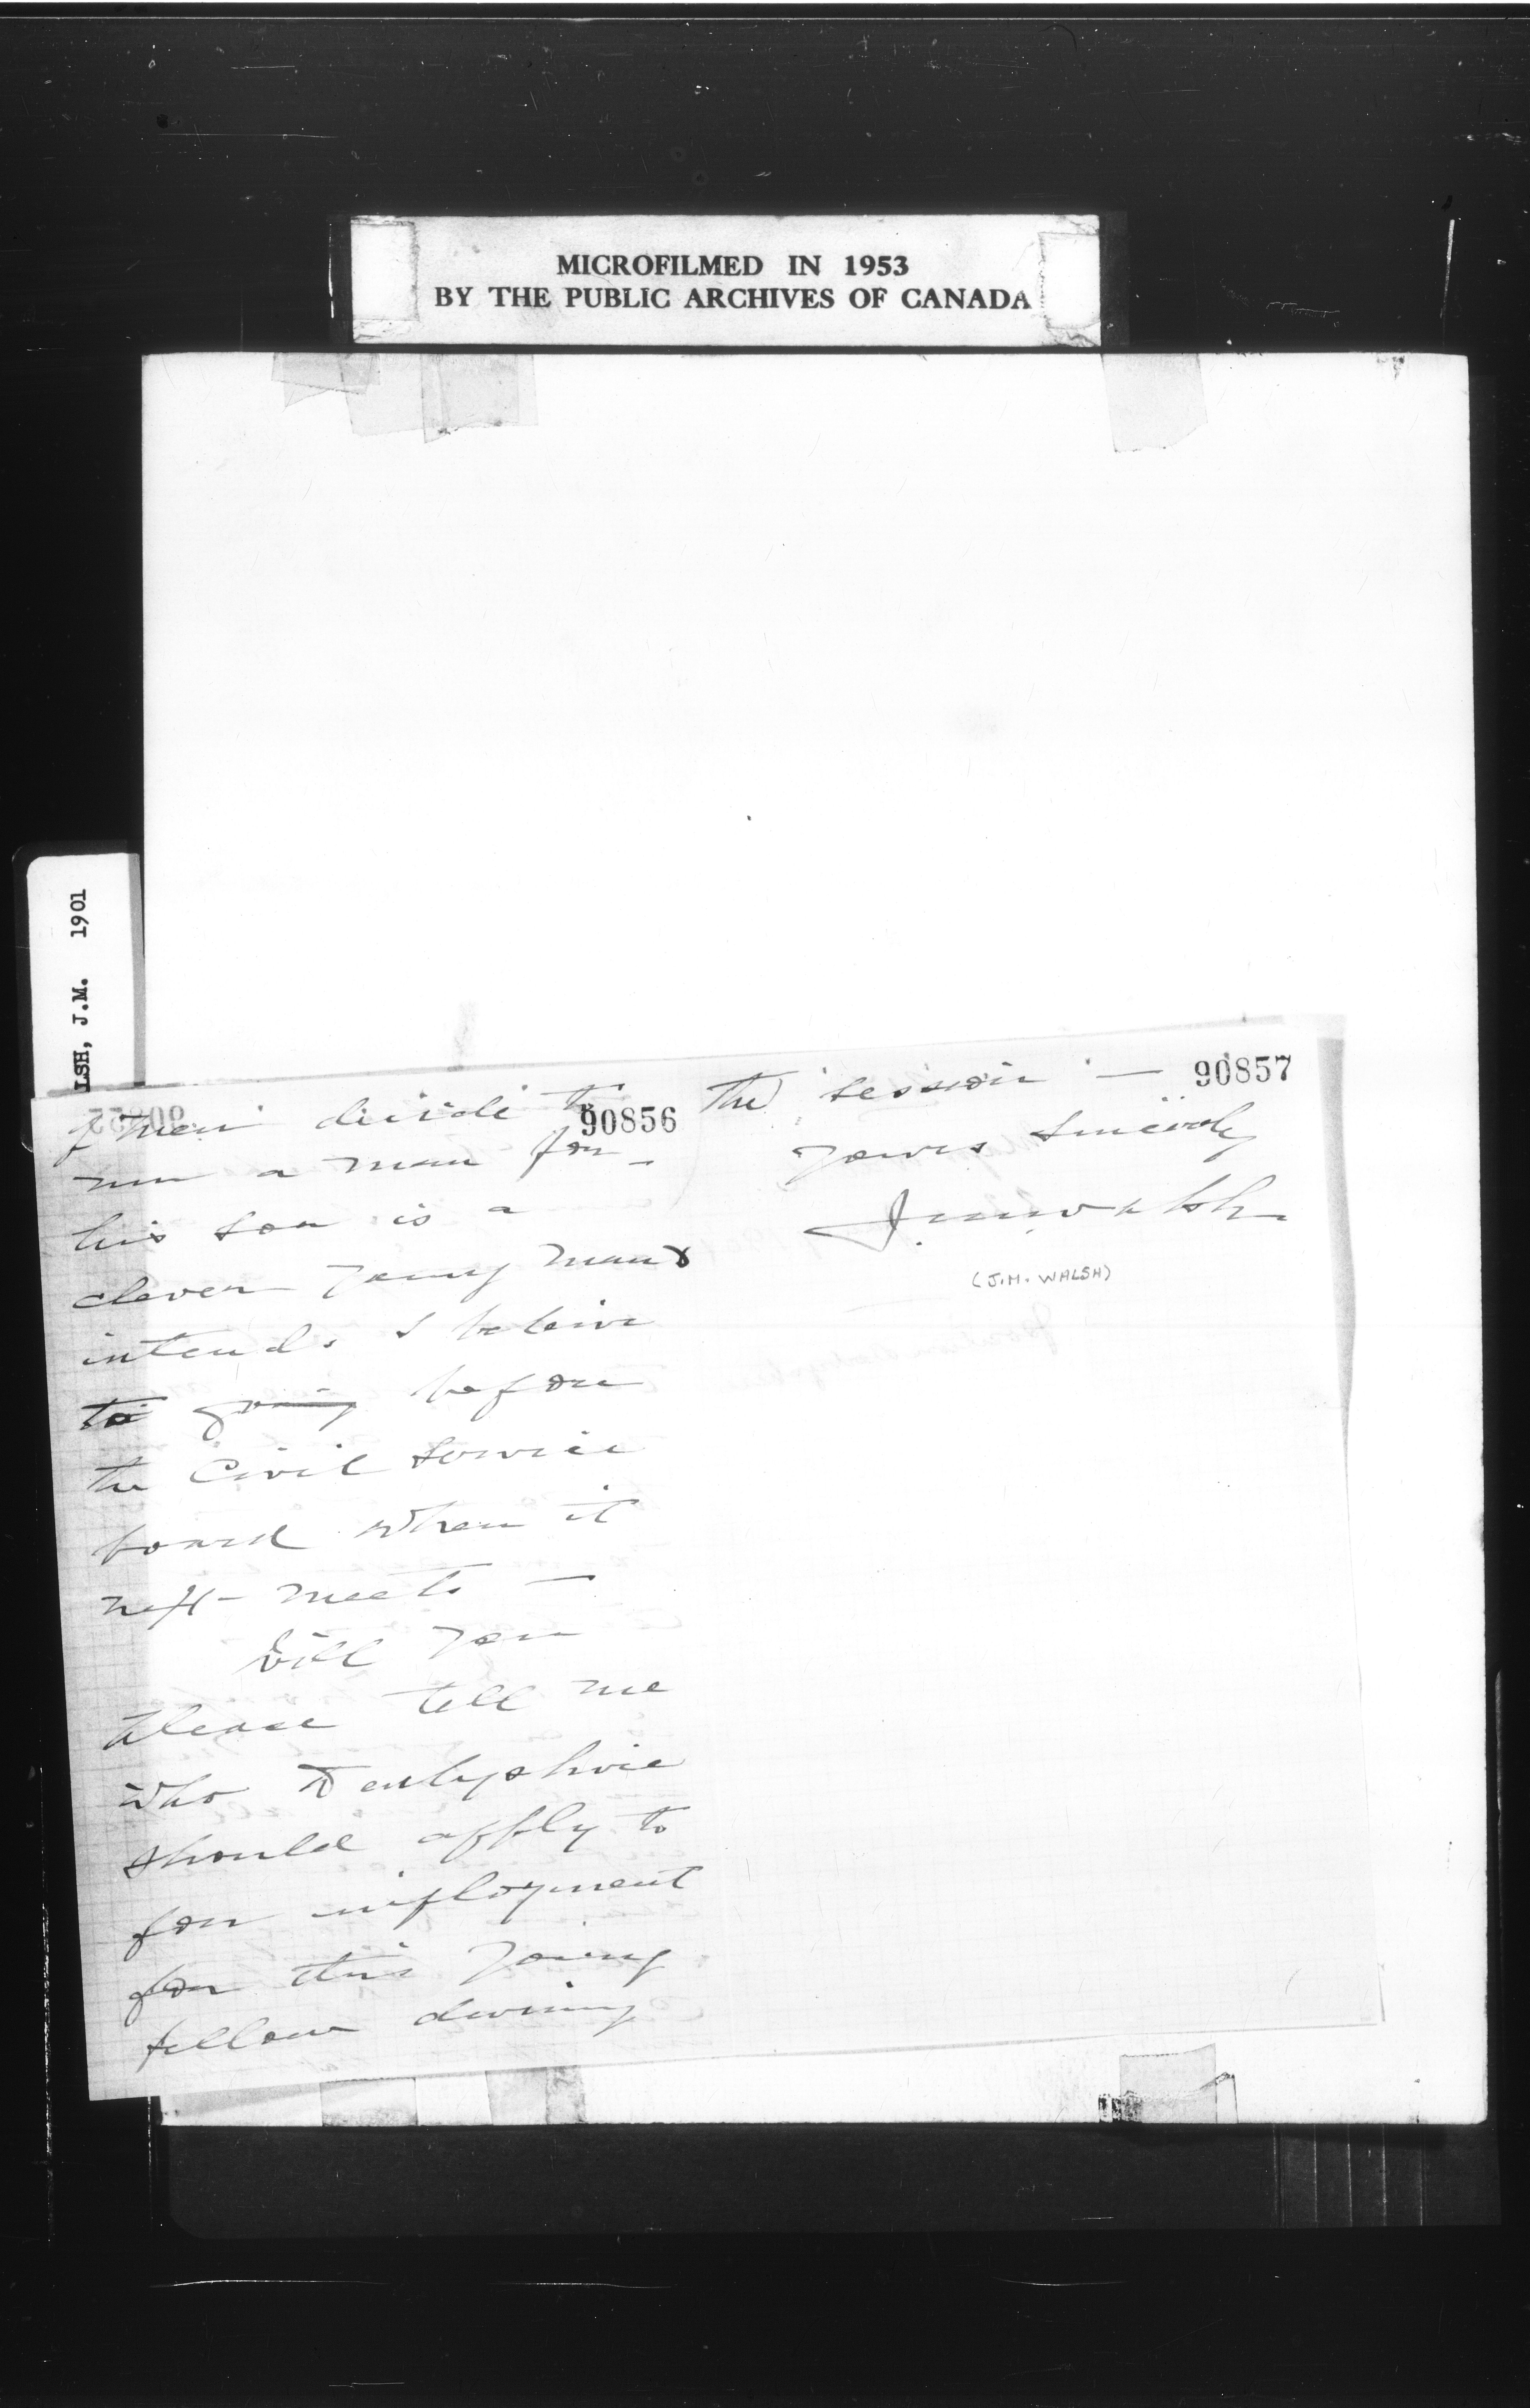 MICROFILMED IN 1953
BY THE PUBLIC ARCHIVES OF CANADA
LSH, J.M. 1901
90856
if they decide to
run a man for –
his son is a
clever young man &
intends I beleive
to going before
the Civil Service
board when it
next meets –
Will you
please tell me
who Derbyshire
should apply to
for employment
for this young
fellow during
90857
the session –
Yours Sincerely
J M Walsh
(J.M. WALSH)